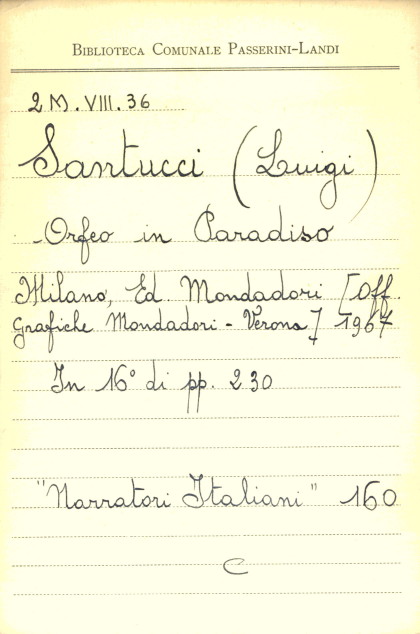 Biblioteca Comunale Passerini-Landi
2 M. VIII. 36
Santucci (Luigi)
Orfeo in Paradiso
Milano, Ed. Mondadori [Off.
Grafiche Mondadori - Verona] 1967
In 16° di pp. 230
"Narratori Italiani" 160
C